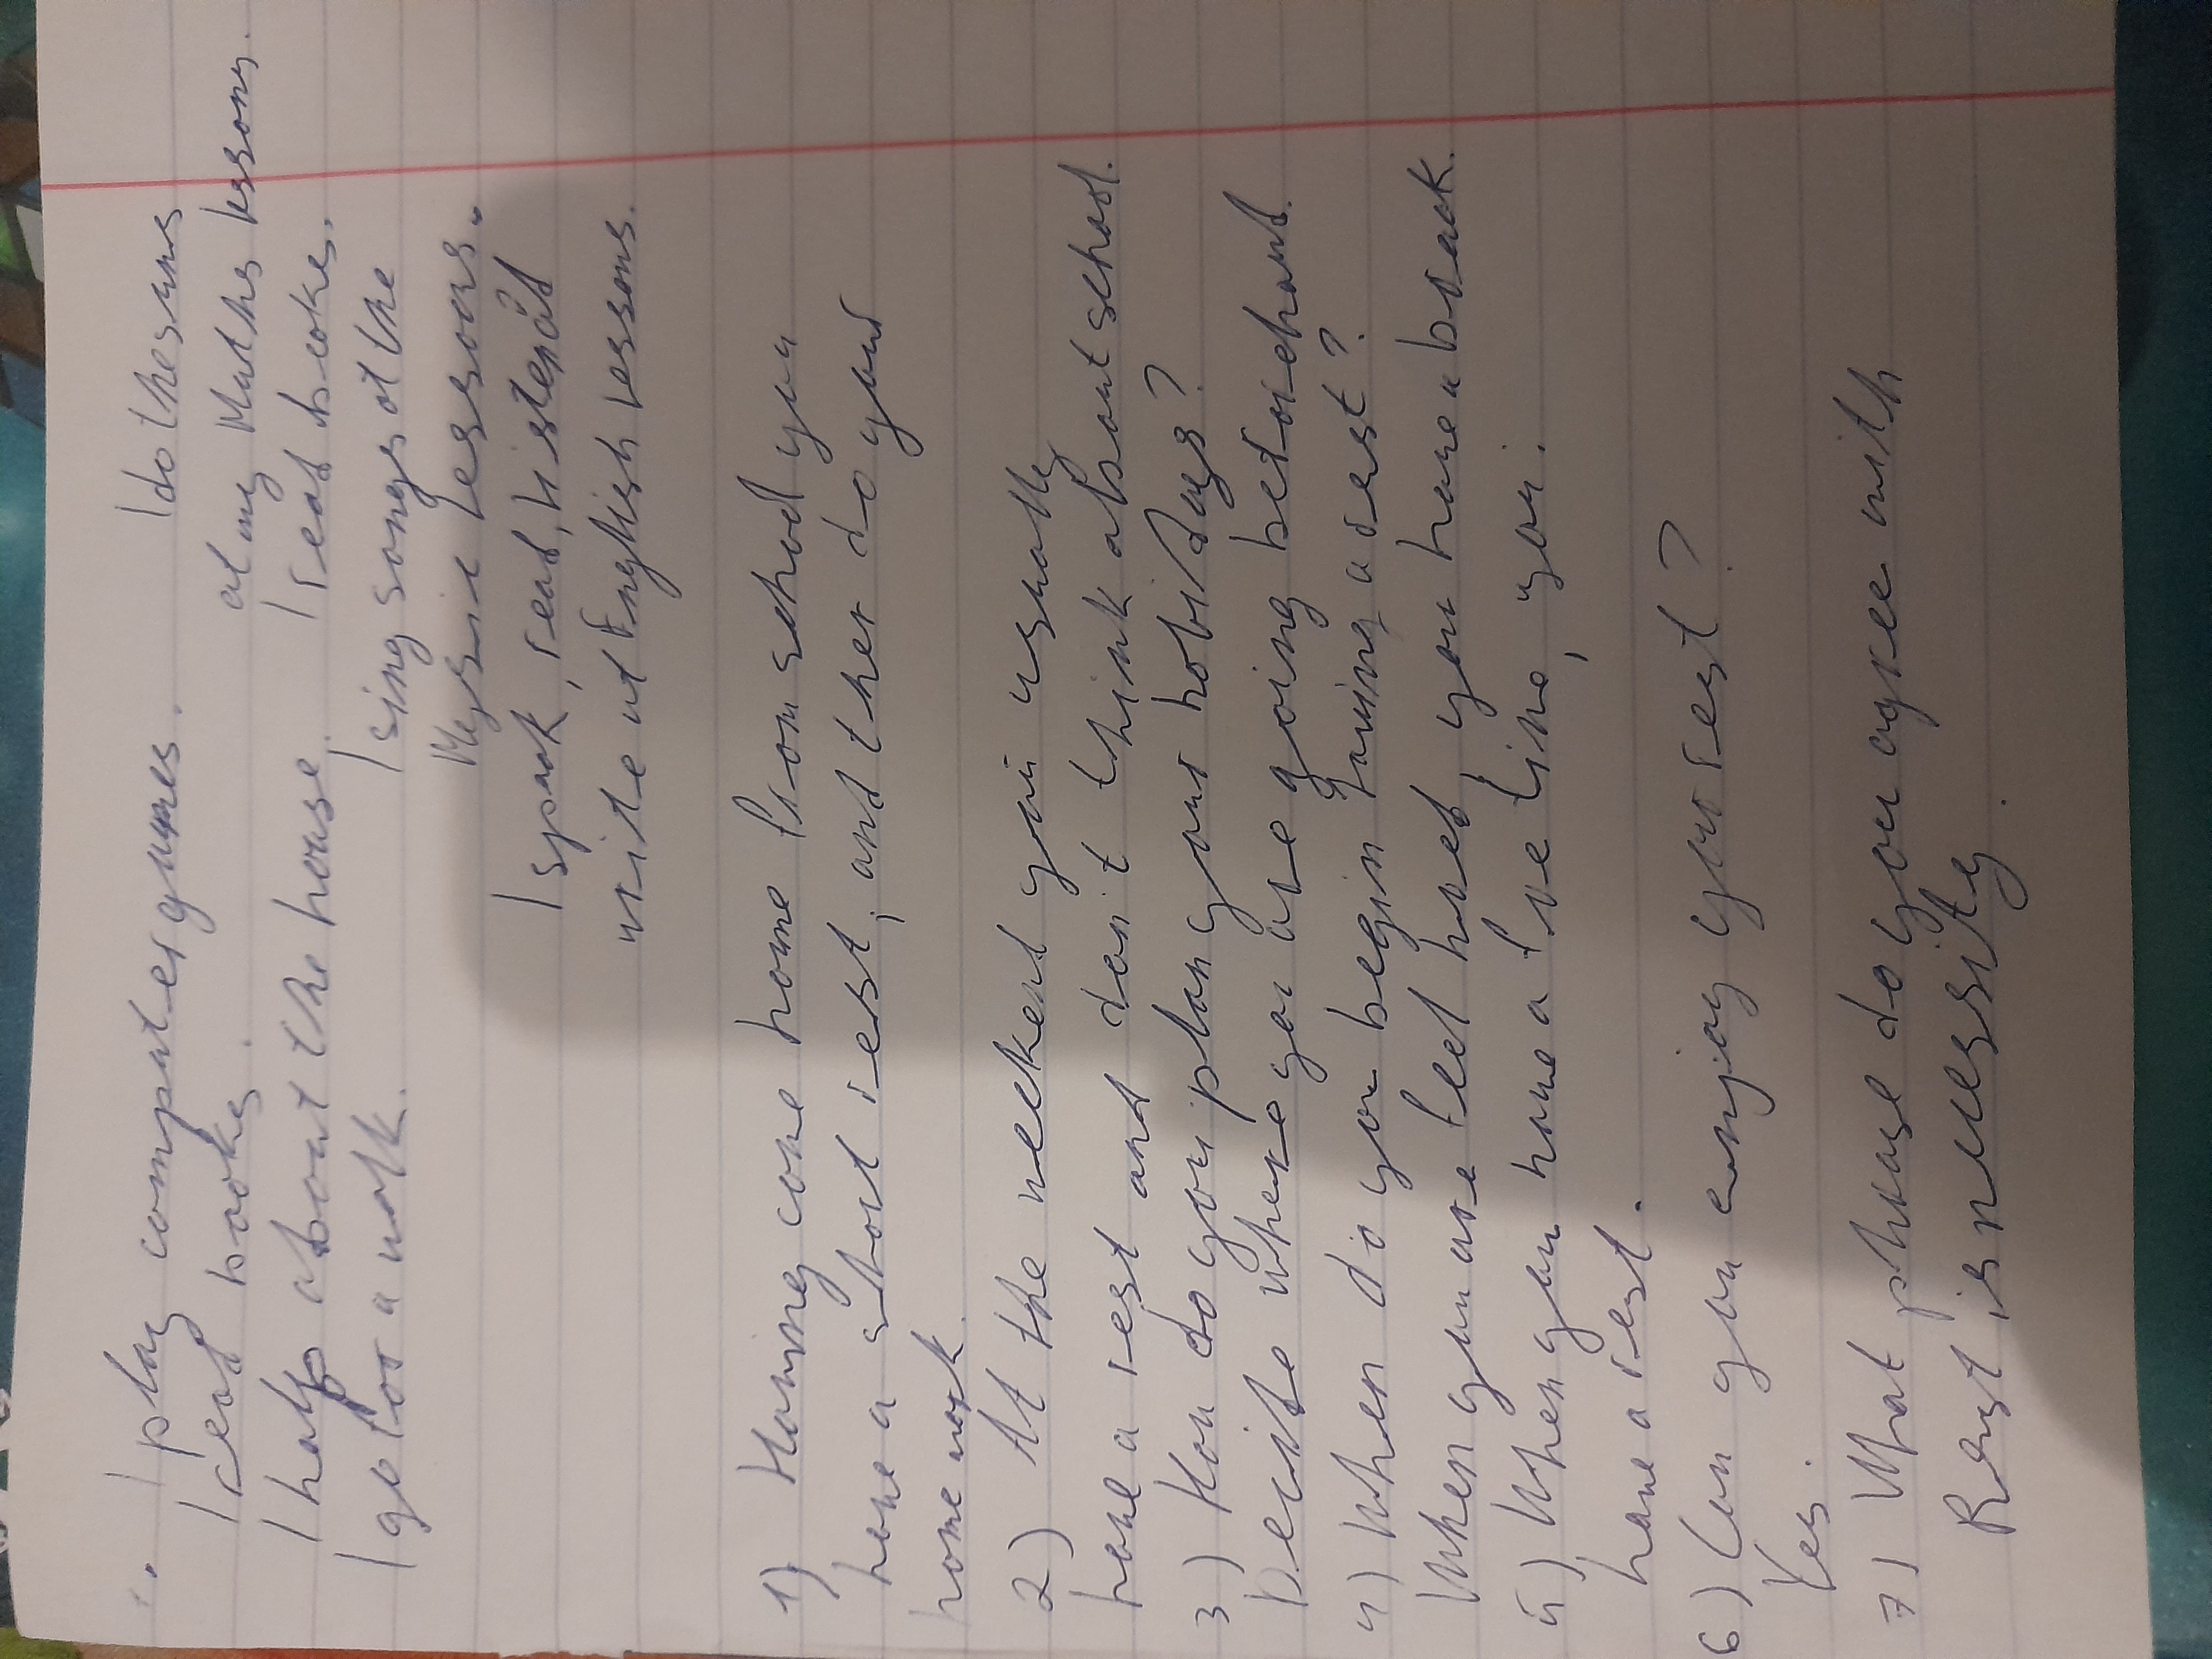 I play computer games.
I read books.
I help about the house.
I go for a walk.
I do the sums
at my Maths lessons.
I read bookes.
I sing songs at the
Mysic lessons.
I speak, read, listen
write at English lessons.
1) Having come home from school you
have a short rest, and then do your
home work.
2) At the weekend you usually
have a rest and don't think about school.
3) How do you plan your holidays?
Decide where you are going beforehand.
4) When do you begin having a rest?
When you are feel tired you have a break.
5) When you have a free time, you
have a rest.
6) Can you enjoy your rest?
Yes.
7) What phrase do you agree with
Rest is necessity.